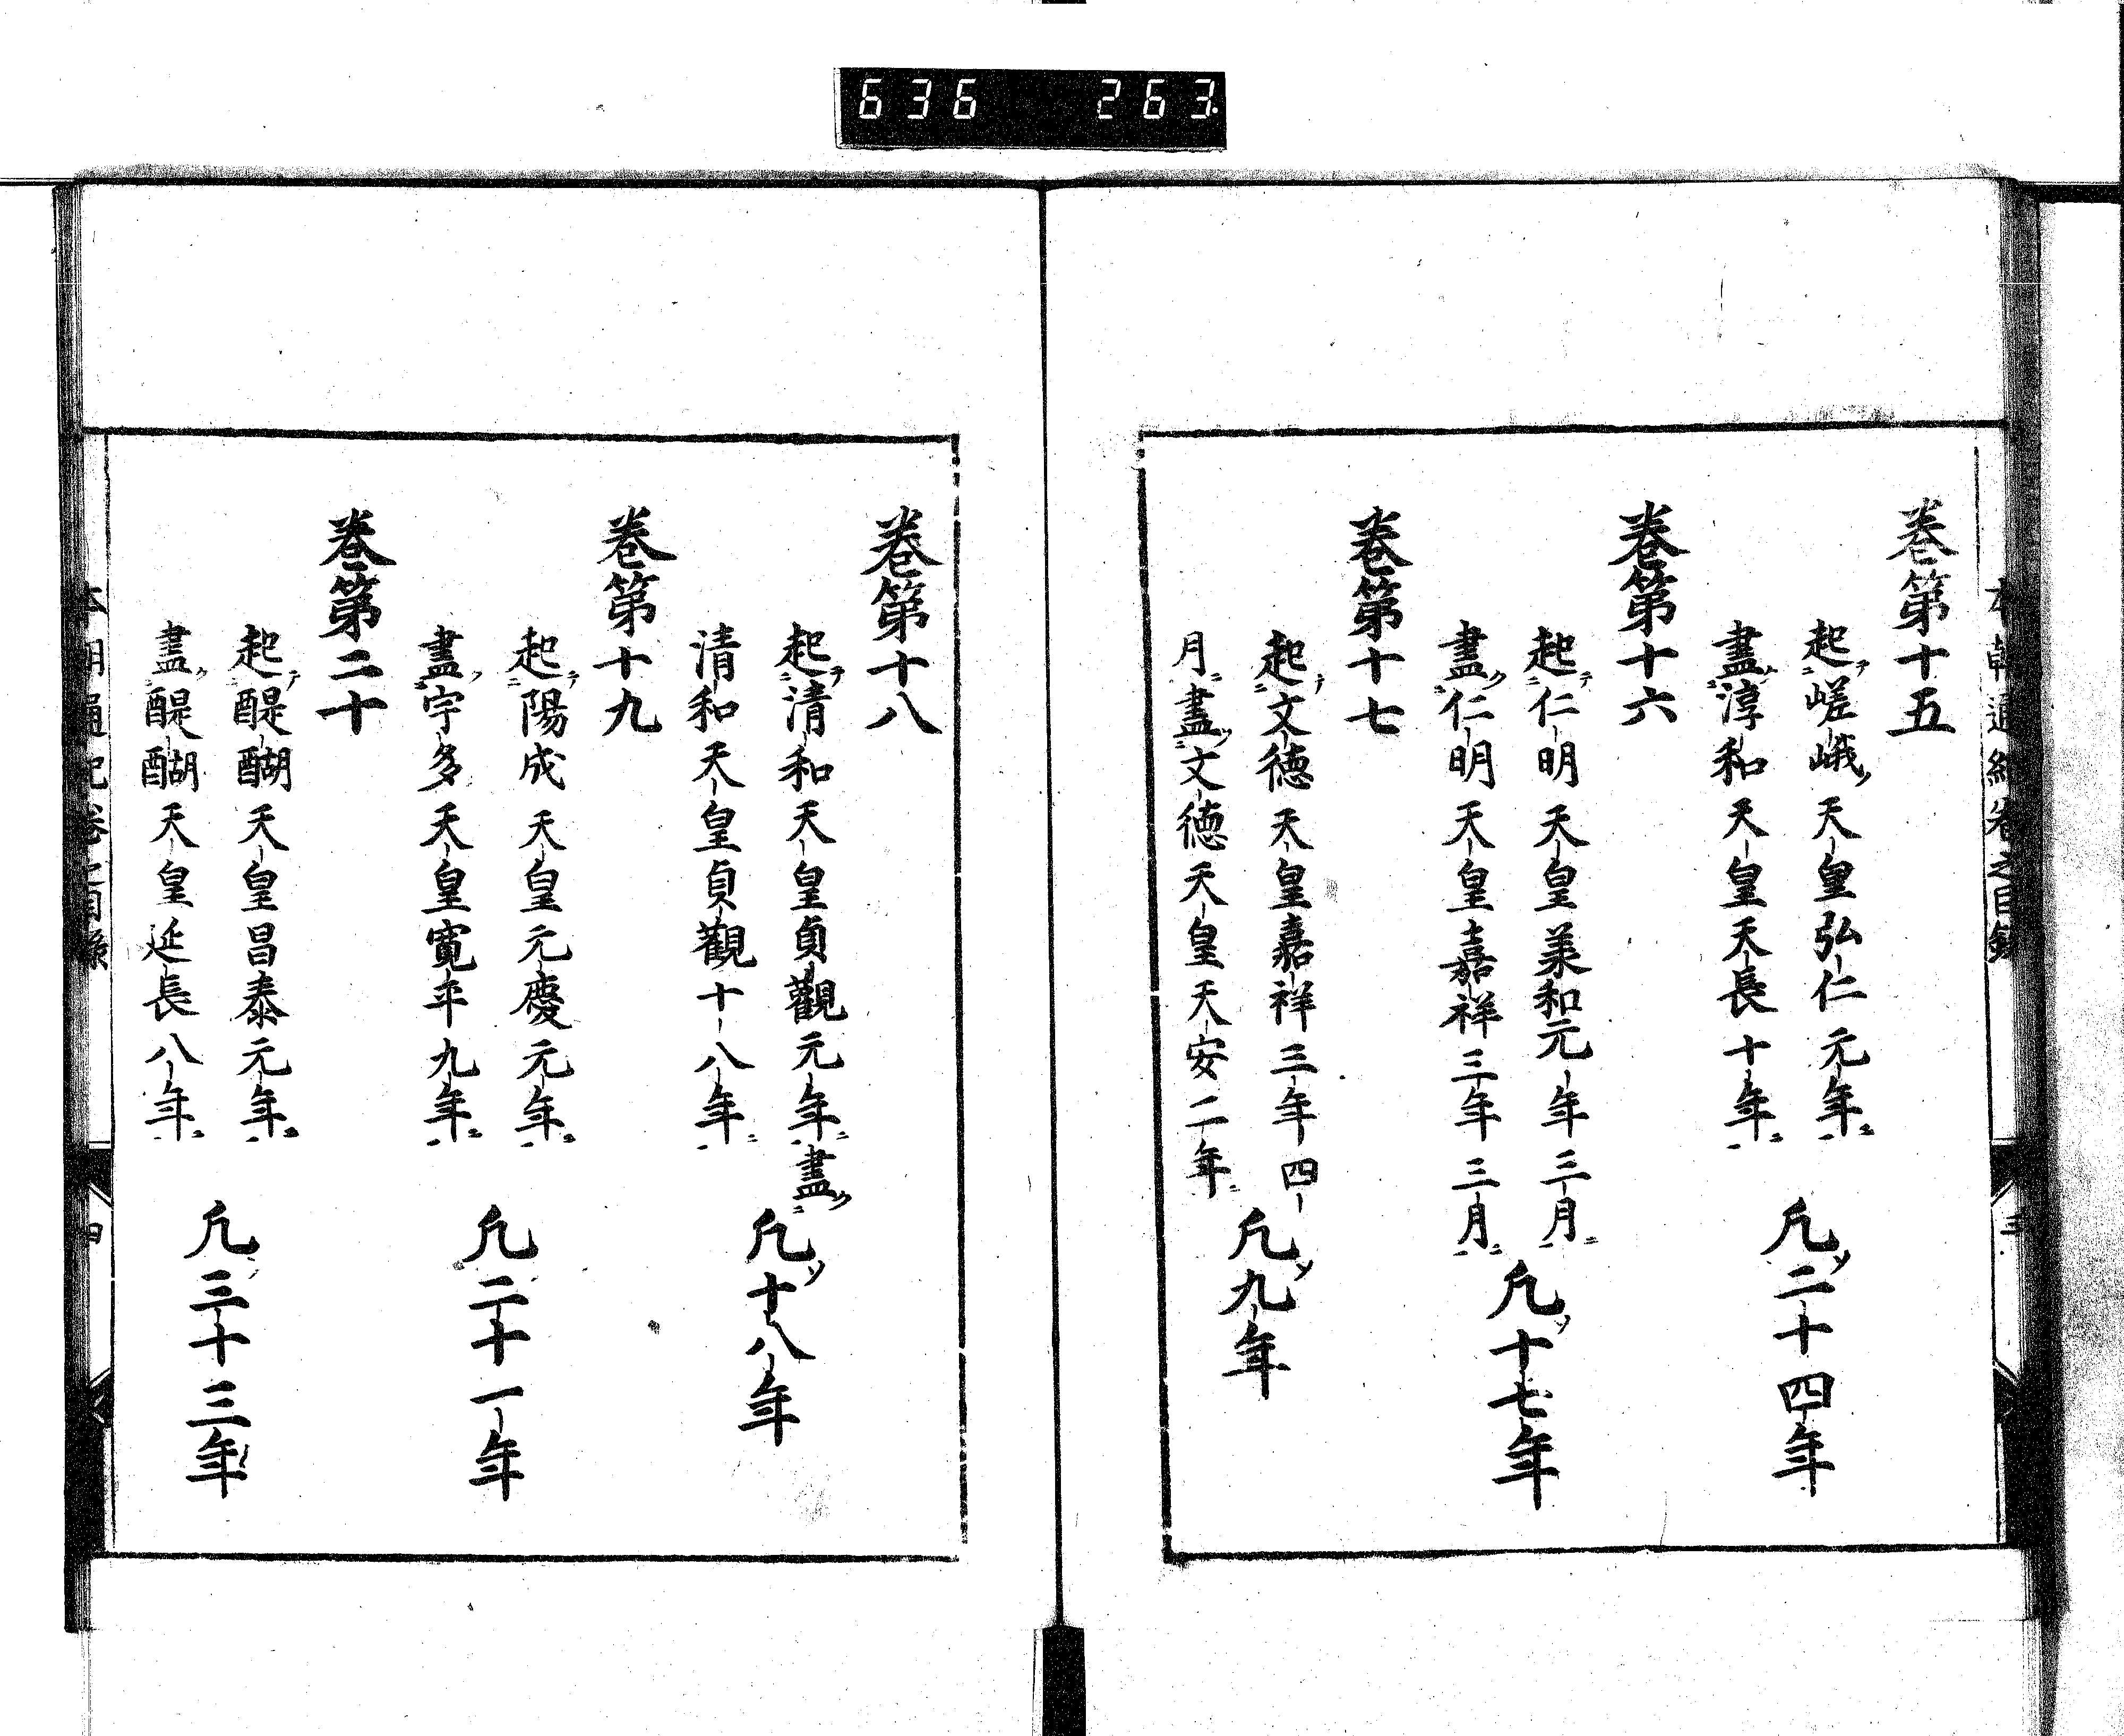 636 263
巻第十五
起嵯峨天皇弘仁元年
盡淳和天皇天長十年
凢二十四年
巻第十六
起仁明天皇羕和元年三月
盡仁明天皇嘉祥三年三月
凢十七年
巻第十七
起文徳天皇嘉祥三年四
月盡文徳天皇天安二年
凢九年
三
巻第十八
起清和天皇貞觀元年盡
清和天皇貞觀十八年
凢十八年
巻第十九
起陽成天皇元慶元年
盡宇多天皇寛平九年
凢二十一年
巻第二十
起醍醐天皇昌泰元年
盡醍醐天皇延長八年
凢三十三年
四